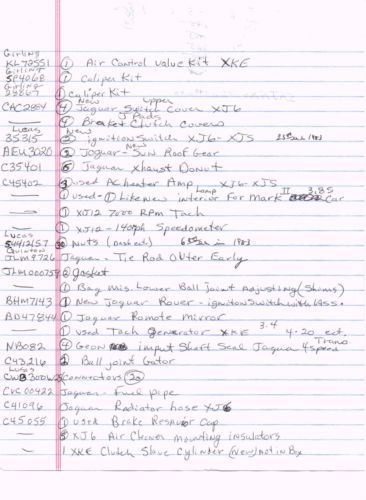 Girling
KL72551 (1) Air Control Value Kit XKE
Girling
SP4068 (1) Caliper Kit
Girling
(1) Caliper Kit
New upper
CAC2884 (4) Jaguar Switch Cover XJ6
J Pads
— (4) Brake Clutch Covers
Lucas New
35315 ignition Switch XJ6-XJS
AEU3020 (2) Jaguar - New Sun Roof Gear
C35401 Jaguar Xhaust Donut
C45402 used Ac heater Amp XJ6-XJS
— (1) used - (1) Like new interior Lamp For Mark II 3.85 Car
— (1) XJ12 7000 RPM Tach
— (1) XJ12 - 140mph Speedometer
Lucas
54412157 Nuts
Quinton
JLM9726 Jaguar - Tie Rod Outer Early
JLM000759 gasket
— (1) Bag Mis. Lower Ball joint Adjusting (Shims)
BHM7143 (1) New Jaguar Rover - ignitonSwitch with
AD47844 (1) Jaguar Romote Mirror
(1) used Tach Generator XKE 3.4 4-20 ect.
NB082 (4) imput Shaft Seal Jaguar 4 speed Trans
C43216 Ball joint Gator
Lucas
Connectors (20)
CVC00422 Jaguar - Fuel pipe
C41096 Jaguar Radiator hose XJ6
C45055 (1) used Brake Cap
— XJ6 Air Cleaner mounting insulators
— 1 XKE Clutch Slave Cylinder (New) not in Box